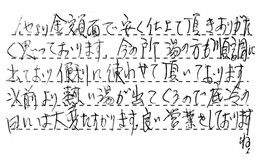 やはり金額面で安く仕上て頂きありがた
く思っております。今の所湯の方も順調に
出ており便利に使わせて頂いております
以前より熱い湯が出てくるので底冷の
日は大変たすかります。良い営業をしております
ね